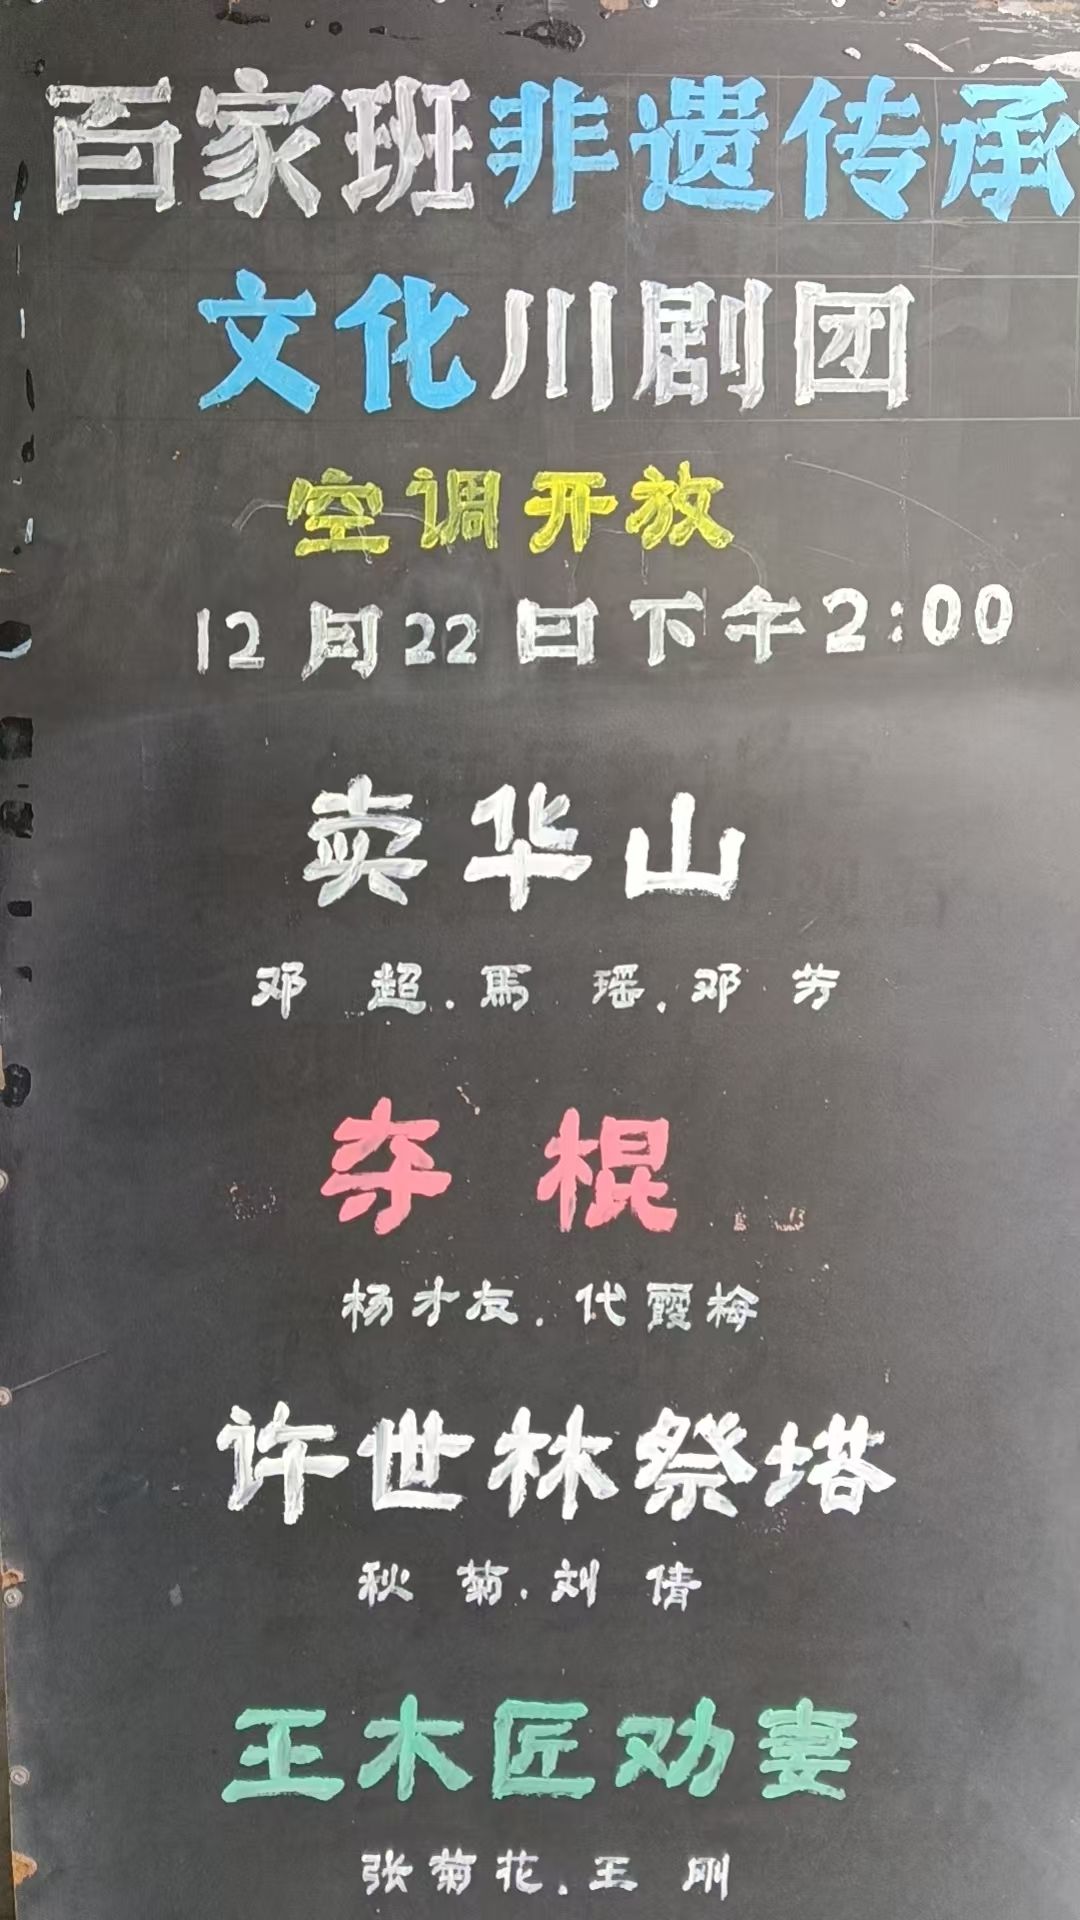 百家班非遗传承
文化川剧团
空调开放
12月22日下午2:00
卖华山
邓 超.馬 瑶.邓 芳
夺 棍
杨才友.代霞梅
许世林祭塔
秋 菊.刘 倩
王木匠劝妻
张菊花.王 刚